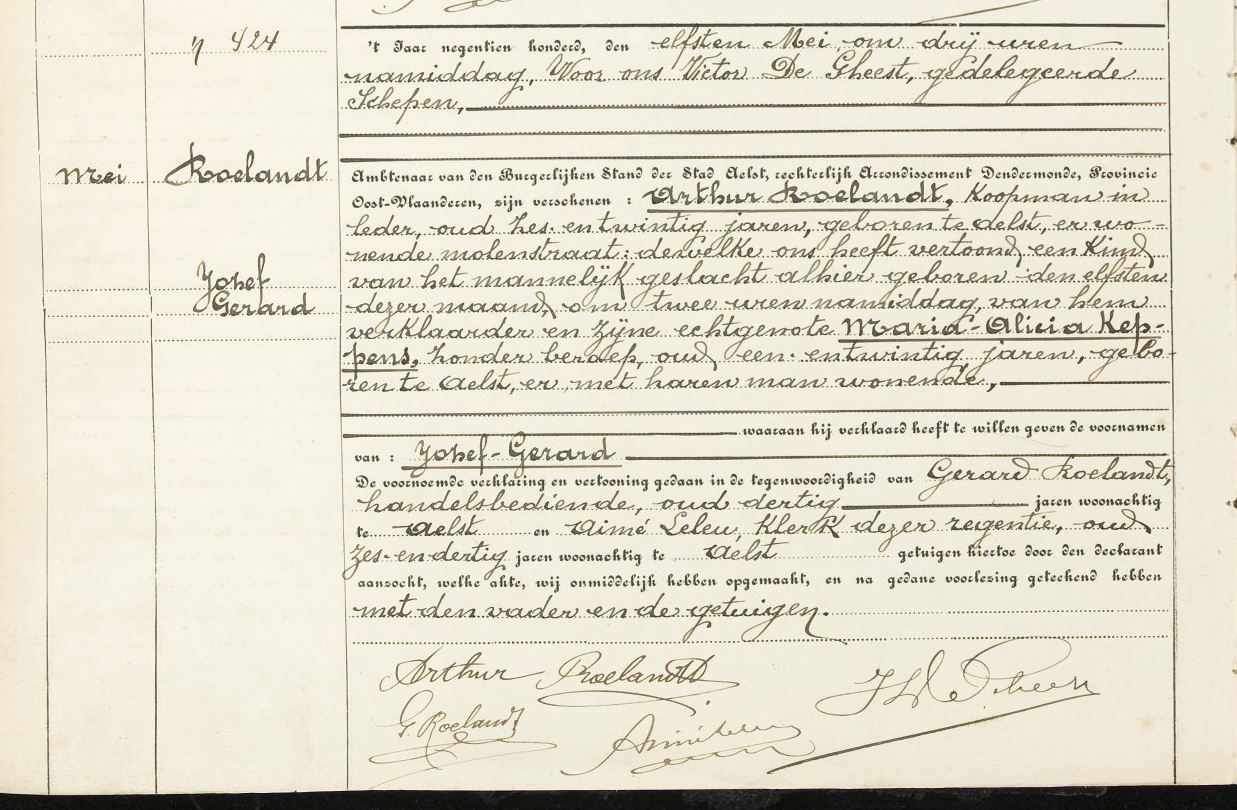 n 424
't Jaar negentien honderd, den elfsten Mei, om drij uren
namiddag, Voor ons Victor De Gheest, gedelegeerde
Schepen,
Mei Roelandt
Jozef
Gerard
Ambtenaar van den Burgerlijken Stand der Stad Aelst, rechterlijk Arrondissement Dendermonde, Provincie
Oost-Vlaanderen, zijn verschenen : Arthur Roelandt, Koopman in
leder, oud zes-en twintig jaren, geboren te Aelst, er wo-
nende molenstraat: dewelke ons heeft vertoond een Kind
van het mannelijk geslacht alhier geboren den elfsten
dezer maand, om twee uren namiddag, van hem
verklaarder en zijne echtgenote Maria-Alicia Kep-
pens, zonder beroep, oud een-en twintig jaren, gebo-
ren te Aelst, er met haren man wonende,
waaraan hij verklaard heeft te willen geven de voornamen
van : Jozef-Gerard
De voornoemde verklaring en vertooning gedaan in de tegenwoordigheid van Gerard Roelandt,
handelsbediende, oud dertig jaren woonachtig
te Aelst en Aimé Leleu, Klerk dezer regentie, oud
zes-en-dertig jaren woonachtig te Aelst getuigen hiertoe door den declarant
aanzocht, welke akte, wij onmiddelijk hebben opgemaakt, en na gedane voorlezing geteekend hebben
met den vader en de getuigen.
Arthur Roelandt
G. Roelandt